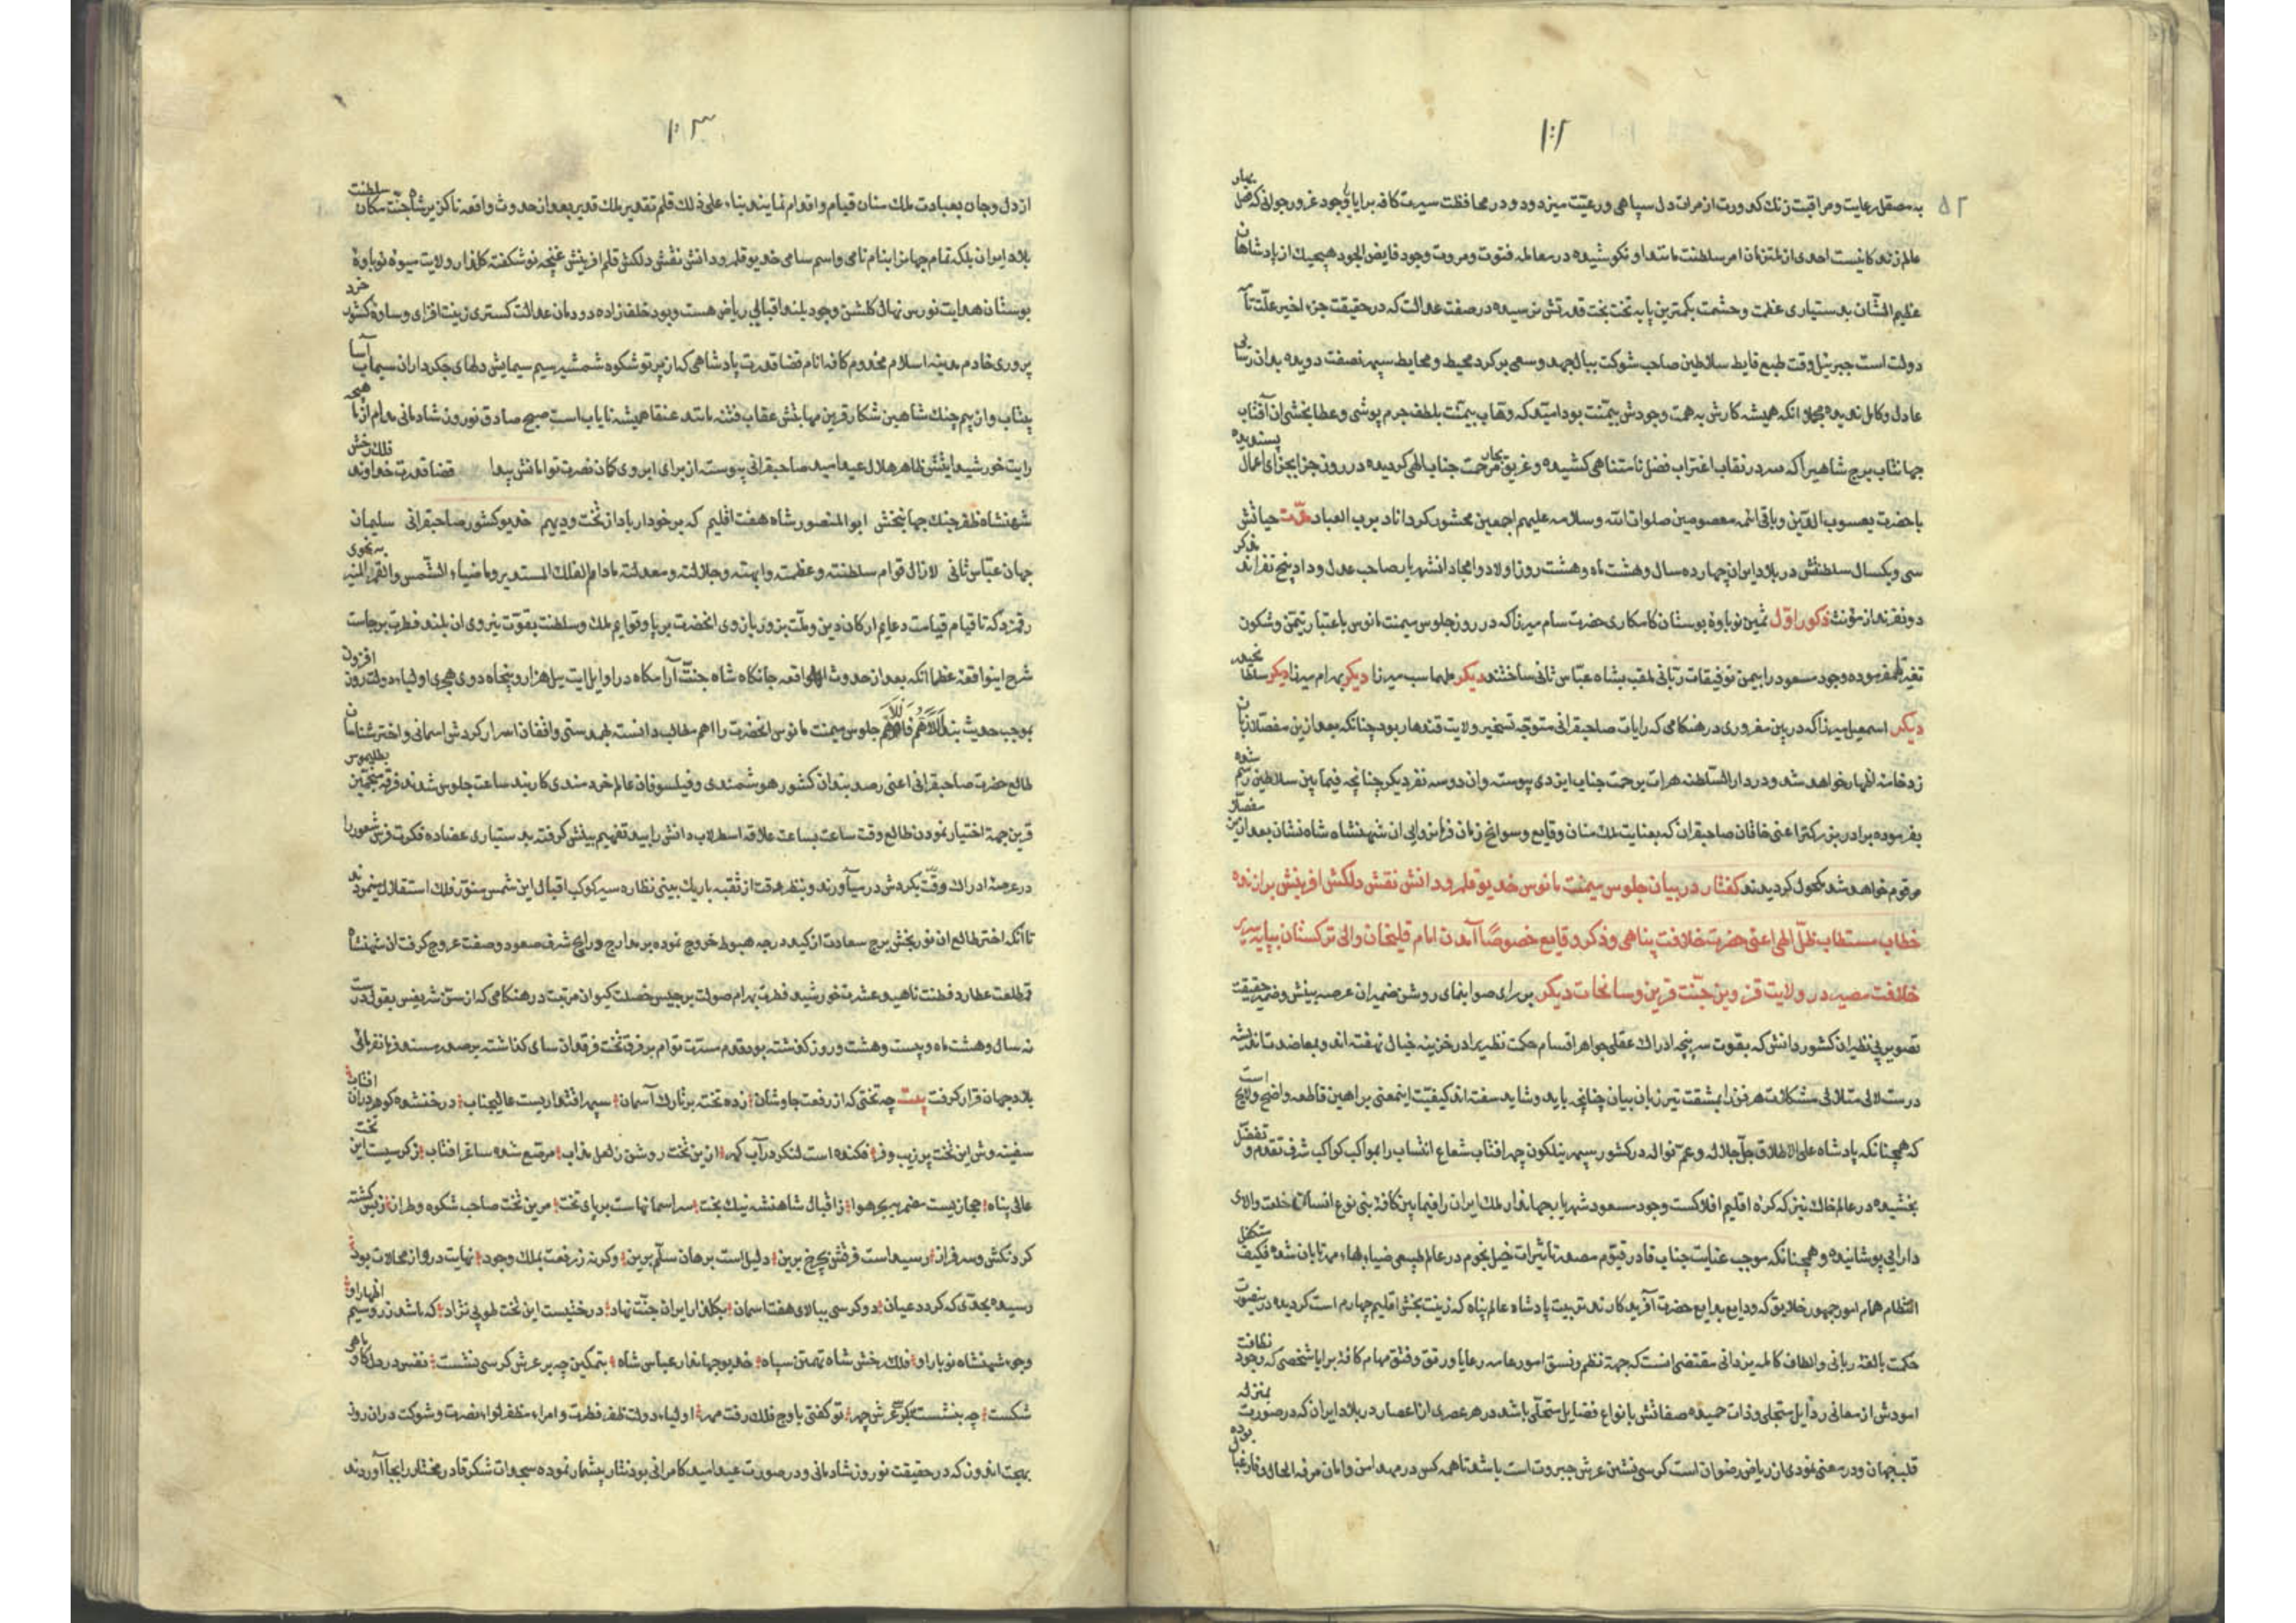 ۱۰۲
۵۲
به مصقل رعایت و مراقبت زنك كدورت از مرات دل سپاهی و رعیت میزدود و در محافظت سیرت كافه برایا با وجود غرور جوانی كه فصل بهار
عالم زندكانیست احدی از ملتزمان امر سلطنت مانند او نكوشیده در معامله فتوت و مروت وجود فایض الجود هیچیك از پادشاهان
عظیم الشأن بدستیاری عظمت و حشمت بكمترین پایه تخت بخت قدرتش نرسیده در صفت عدالت كه در حقیقت جزء اخیر علت تا
دولت است جبرئیل وقت طبع سلاطین صاحب شوكت ببال جهد و سعی بر كرد محیط و محایط سپهر نصفت دویده بدان رسایی
عادل و كامل ندیده مجملا انكه همیشه كارش به همت وجودش بیمنت بود امید كه وهاب بیمنت بلطف جرم پوشی و عطا بخشی ان آفتاب
جهانتاب برج شاهی را كه سر در نقاب اغتراب فضل نامتناهی كشیده و غریق بحار مرحمت جناب الهی كردیده در روز جزا بجزای اعمال پسندیده
با حضرت یعسوب الدین و باقی ائمه معصومین صلوات الله و سلامه علیهم اجمعین محشور كرداناد برب العباد مدت حیاتش
سی و یكسال سلطنتش در بلاد ایران چهارده سال و هشت ماه و هشت روز اولاد و امجاد انشهریار صاحب عدل و داد پنج نفراند مذكر
دو نفرند از مؤنث ذكور اول ثمین نوباوه بوستان كامكاری حضرت سام میرزا كه در روز جلوس میمنت مانوس باعتبار تیمن و شكون
تغیر اسم فرموده وجود مسعود را بیمن توفیقات ربانی ملقب بشاه عباس ثانی ساختند دیكر طهماسب میرزا دیكر بهرام میرزا دیكر سلطان
دیكر اسمعیل میرزا كه در هنكامی كه رایات صاحبقرانی متوجه تسخیر ولایت قندهار بود چنانكه بعد ازین مفصلا زبان
زد خامه اظهار خواهد شد و در دار السلطنه هرات برحمت جناب ایزدی پیوسته وان دو سه نفر دیكر چنانچه فیما بین سلاطین رسم شده
بفرموده برادر بزركتر اعنی خاقان صاحبقران كه بعنایت ملك منان وقایع و سوانح زمان فرمانروایی ان شهنشاه شاه نشان بعد ازین مفصلا
مرقوم خواهد شد مكحول كردیدند كفتار در بیان جلوس میمنت مانوس خدیو قلمرو دانش نقش دلكش افرینش برازنده
خطاب مستطاب ظل الهی اعنی حضرت خلافت پناهی و ذكر وقایع خصوصا آمدن امام قلیخان والی تركستان بپایه سریر
خلافت مصیر در ولایت قزوین جنت قرین و سانحات دیكر بر رای صوابنمای روشن ضمیران عرصه بینش و ضمیر حقیقت
تصویر بی نظیران كشور دانش كه بقوت سر پنچه ادراك عقلی جواهر اقسام حكمت نظریرا در خزینه خیال نهفته اند و بمعاضدت اندیشه
درست لالی متلالی مشكلات هر فن را بمشقت تیز زبان بیان چنانچه باید و شاید سفته اند كیفیت اینمعنی ببراهین قاطعه واضح و لایح است
كه همچنانكه پادشاه علی الاطلاق جل جلاله و عم نواله در كشور سپهر نیلكون چهر افتاب شعاع انتساب را بمواكب كواكب شرف تقدم و تفضل
بخشیده در عالم خاك نیز كه كره اقلیم افلاكست وجود مسعود شهریار جهاندار ملك ایران را فیما بین كافه بنی نوع انسان خلعت والای
دارایی پوشانیده و همچنانكه موجب عنایت جناب قادر قیوم مصدر تاثیرات خیل نجوم در عالم طبیعی ضیاء بهاء مهر تابان شده متكفل كیف
انتظام مهام امور جمهور خلایق كه ودایع بدایع حضرت آفریدكارند تربیت پادشاه عالم پناه كه زینت بخش اقلیم چهارم است كردیده در ینصورت
حكمت بالغه ربانی و الطاف كامله یزدانی مقتضی انست كه جهة نظم و نسق امور عامه رعایا و رتق و فتق مهام كافه برایا شخصی كه وجود نظافت
امودش از معانی رذایل متخلی و ذات حمیده صفاتش بانواع فضایل متحلی باشد در هر عصری از اعصار در بلاد ایران كه در صورت بمنزله
قلب جهان و در معنی نمودی از ریاض رضوان است كرسی نشین عرش جبروت است باشد تا همه كس در مهد امن و امان مرفه الحال و فارغبال بوده
۱۰۳
از دل و جان بعبادت ملك منان قیام و اقدام نمایند بناء علی ذلك قلم تقدیر ملك قدیر بعد از حدوث واقعه ناكزیر شاه جنت مكان سلطنت
بلاد ایران بلكه تمام جهانرا بنام نامی و اسم سامی خدیو قلمرو دانش نقش دلكش قلم افرینش غنچه نوشكفته كلزار ولایت میوه نوباوه
بوستان هدایت نورس نهال كلشن وجود بلند اقبالی ریاض هست و بود خلف زاده دودمان عدالت كستری زینت افزای وساده كشور خرد
پروری خادم مدینه اسلام مخدوم كافه انام قضا قدرت پادشاهی كه از پرتو شكوه شمشیر سیم سیمایش دلهای جكرداران سیماب آسا
بیتاب و از بیم چنك شاهین شكار قرین مهابتش عقاب فتنه مانند عنقا همیشه نایاب است صبح صادق نوروز شادمانی مدام از ماهچه
رایت خورشید ایتش ظاهر هلال عید امید صاحبقرانی پیوسته از برای ابروی كمان نصرت توامانش پیدا قضا قدرت خداوند فلك رخش
شهنشاه ظفر چنك جهانبخش ابو المنصور شاه هفت اقلیم كه برخوردار باد از تخت و دیهیم خدیو كشور صاحبقرانی سلیمان
جهان عباس ثانی لازال قوام سلطنته و عظمته و ابهته و جلالته و معدلته مادام الفلك المستدیر و ما ضیاء الشمس و القمر المنیر به نحوی
رقمزد كه تا قیام قیامت دعایم اركان دین و ملت بزور بازوی انحضرت برپا و قوایم ملك و سلطنت بقوت نیروی ان بلند فطرت برجاست
شرح اینواقعه عظما انكه بعد از حدوث واقعه جانكاه شاه جنت آرامكاه در اوایل ایت ییل هزار و پنجاه و دوی هجری اولیاء دولت روز افزون
بموجب حدیث ... جلوس میمنت مانوس انحضرت را اهم مطالب دانسته بهمدستی واقفان اسرار كردش اسمانی و اختر شناسان
طالع حضرت صاحبقرانی اعنی رصد بندان كشور هوشمندی و فیلسوفان عالم خردمندی كاربند ساعت جلوس شدند فرقه منجمین بطلیموس
قرین جهة اختیار نمودن طالع وقت ساعت بساعت علاقه اسطرلاب دانش را بید تفهیم بینش كرفته بدستیاری عضاده فكرت فرس شعور را
در عرصه ادراك و دقت بكردش در میآورند و بنظر دقت از ثقبه باریك بینی نظاره سیر كوكب اقبال این شمس منور فلك استقلال مینمودند
تا آنكه اختر طالع ان نور بخش برج سعادت از كید درجه هبوط خروج نموده بر معارج و رایج شرف صعود و صفت عروج كرفت ان شهنشاه
قمر طلعت عطارد فطنت ناهید عشرت خورشید فطرت بهرام صولت برجیس خصلت كیوان مرتبت در هنكامی كه از سن شریفش بقول درست
نه سال و هشت ماه و بیست و هشت روز كذشته بود قدم مسرت توام بر فرق تخت فرقدان سای كذاشته بر صدر مسند فرمانفرمایی
بلاد جهان قرار كرفت بیت چه تختی كه از رفعت جاوشان زده تخته بر تارك آسمان سپهر اقتداریست عالیجناب درخشنده كوهر دران افتاب
سفینه وش این تخت پر زیب و فر فكنده است لنكر در آب كهر ازین تخت روشن ز لعل مذاب مرصع شده ساغر افتاب ز كرسیست این تخت
عالی پناه مجازیست ... ز اقبال شاهنشه نیك بخت سر اسمانهاست بر پای تخت مرین تخت صاحب شكوه و طراز ز بس كشته
كردنكش و سرفراز رسیداست فرقش بچرخ برین دلیل است برهان سلم برین وكرنه ز رفعت بملك وجود نهایت درو از محالات بود
رسیده بحدی كه كردد عیان دو كرسی ببالای هفت اسمان بكلزار ایران جنت نهاد درختیست این تخت طوبی نژاد كه باشد زر و سیم ازهار او
وجود شهنشاه نوبار او فلك رخش شاه تهمتن سپاه خدیو جهاندار عباس شاه بتمكین چه بر عرش كرسی نشست نفس در دل كاو ماهی
شكست چه بنشست بر كرسی عرش چهر تو كفتی باوج فلك رفت مهر اولیاء دولت ظفر فطرت و امراء مظفر لواء نصرت و شوكت دران روز
بهجت اندوز كه در حقیقت نوروز شادمانی و در صورت عید امید كامرانی بود نثار بیشمار نموده سجدات شكر قادر مختار را بجا آوردند